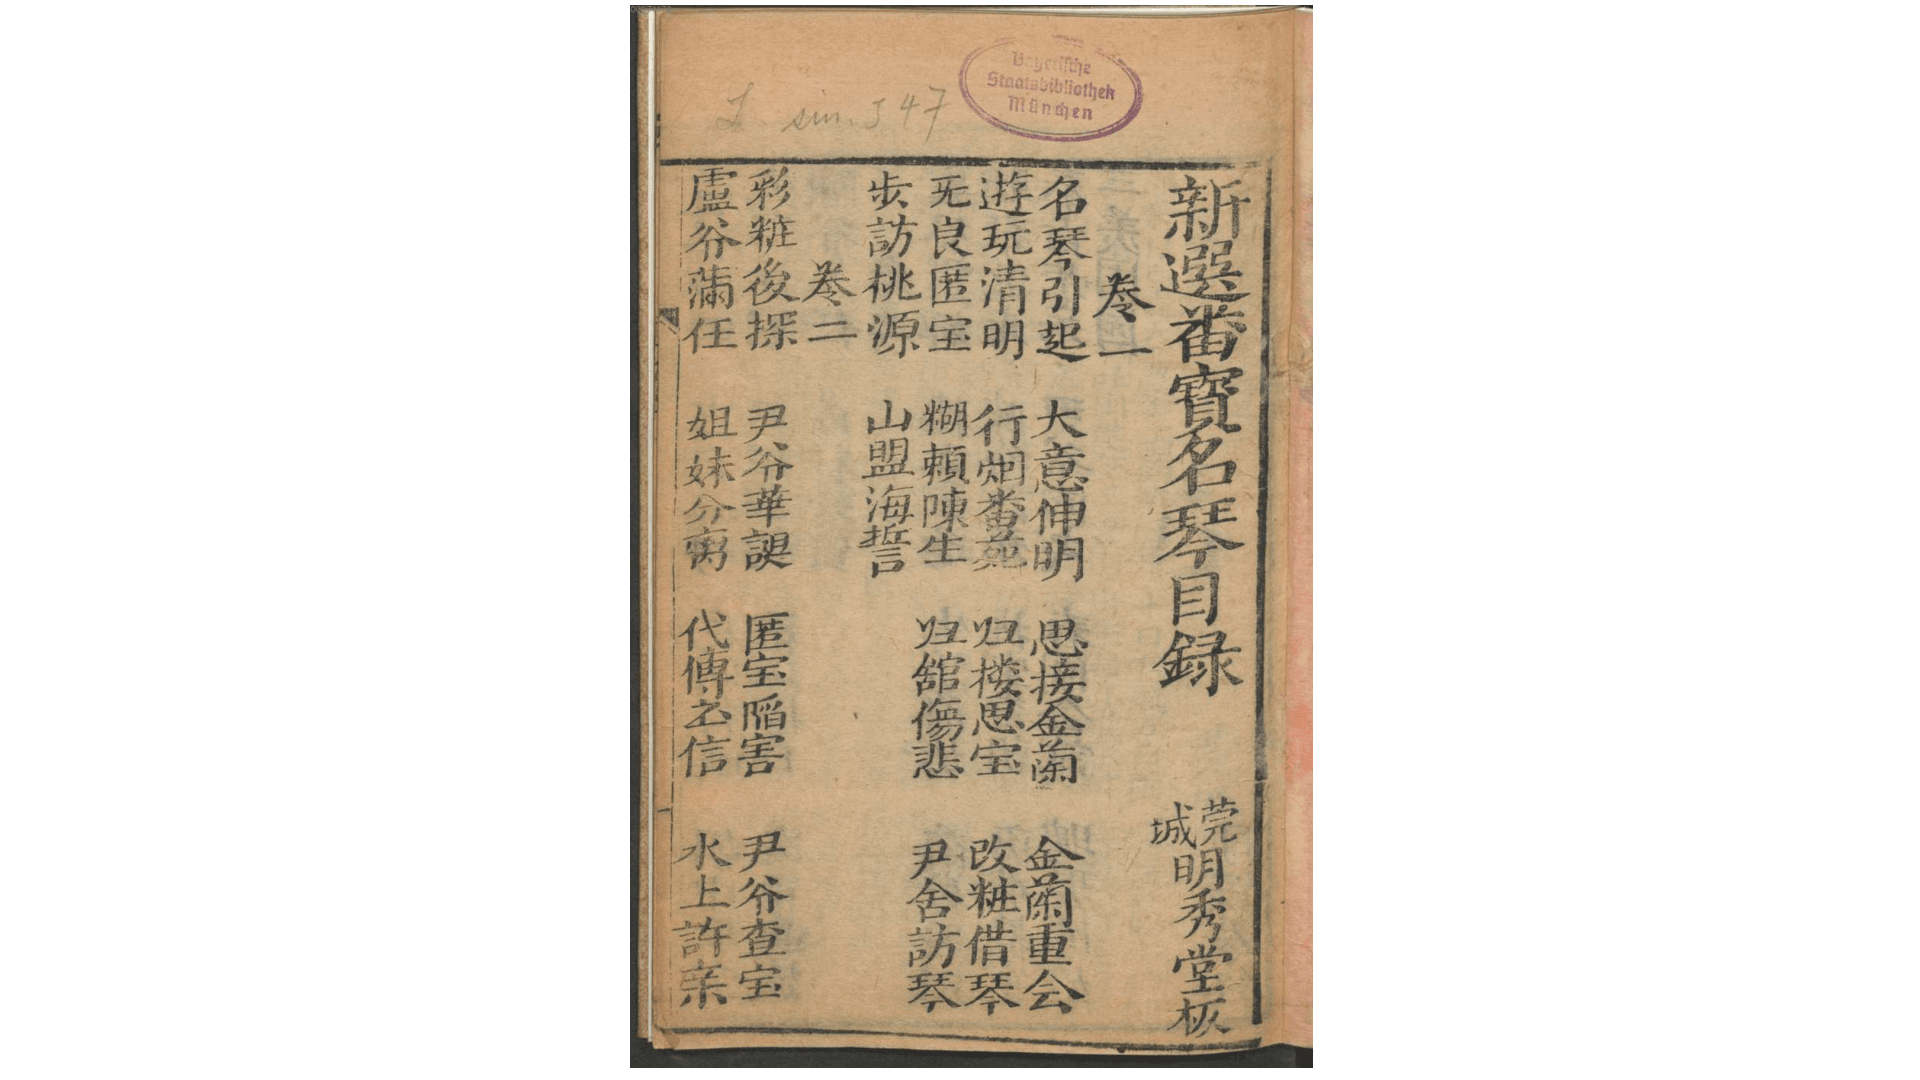 Bayerische
Staatsbibliothek
München
L. sin. J 47
新選畨寳名琴目録 莞城明秀堂板
卷一
名琴引起 大意伸明 思接金蘭 金蘭重会
遊玩清明 行烟畨苑 归楼思宝 改粧借琴
旡良匿宝 糊頼陳生 归舘傷悲 尹舍訪琴
步訪桃源 山盟海誓
卷二
彩粧後探 尹爷華誤 匿宝陷害 尹爷查宝
盧爷蒲任 姐妹分离 代傳玄信 水上許亲